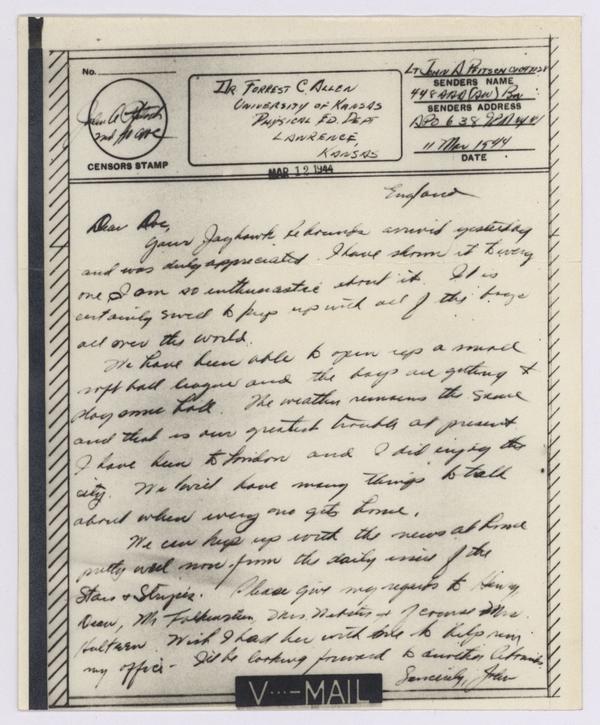 No.
John A. Pfitsch
2nd Lt
CENSORS STAMP
Dr Forrest C. Allen
University of Kansas
Physical Ed. Dept
Lawrence,
Kansas
Lt John A Pfitsch
SENDERS NAME
448 AAA (AW) Bn
SENDERS ADDRESS
APO 638
11 Mar 1944
DATE
MAR 12 1944
England
Dear Doc,
Your Jayhawk Rebounds arrived yesterday
and was duly appreciated. I have shown it to every
one I am so enthusiastic about it. It is
certainly swell to keep up with all of the boys
all over the world.
We have been able to open up a small
soft ball league and the boys are getting to
play some ball. The weather remains the same
and that is our greatest trouble at present
I have been to London and I did enjoy the
city. We will have many things to talk
about when every one gets home.
We can keep up with the news at home
pretty well now from the daily issue of the
Stars + Stripes. Please give my regards to Henry
Mr Falkenstein, Mrs. + of course Mrs.
Hultzen. Wish I had her with me to help run
my office - I'll be looking forward to another Rebounds
Sincerely, John
V···—MAIL